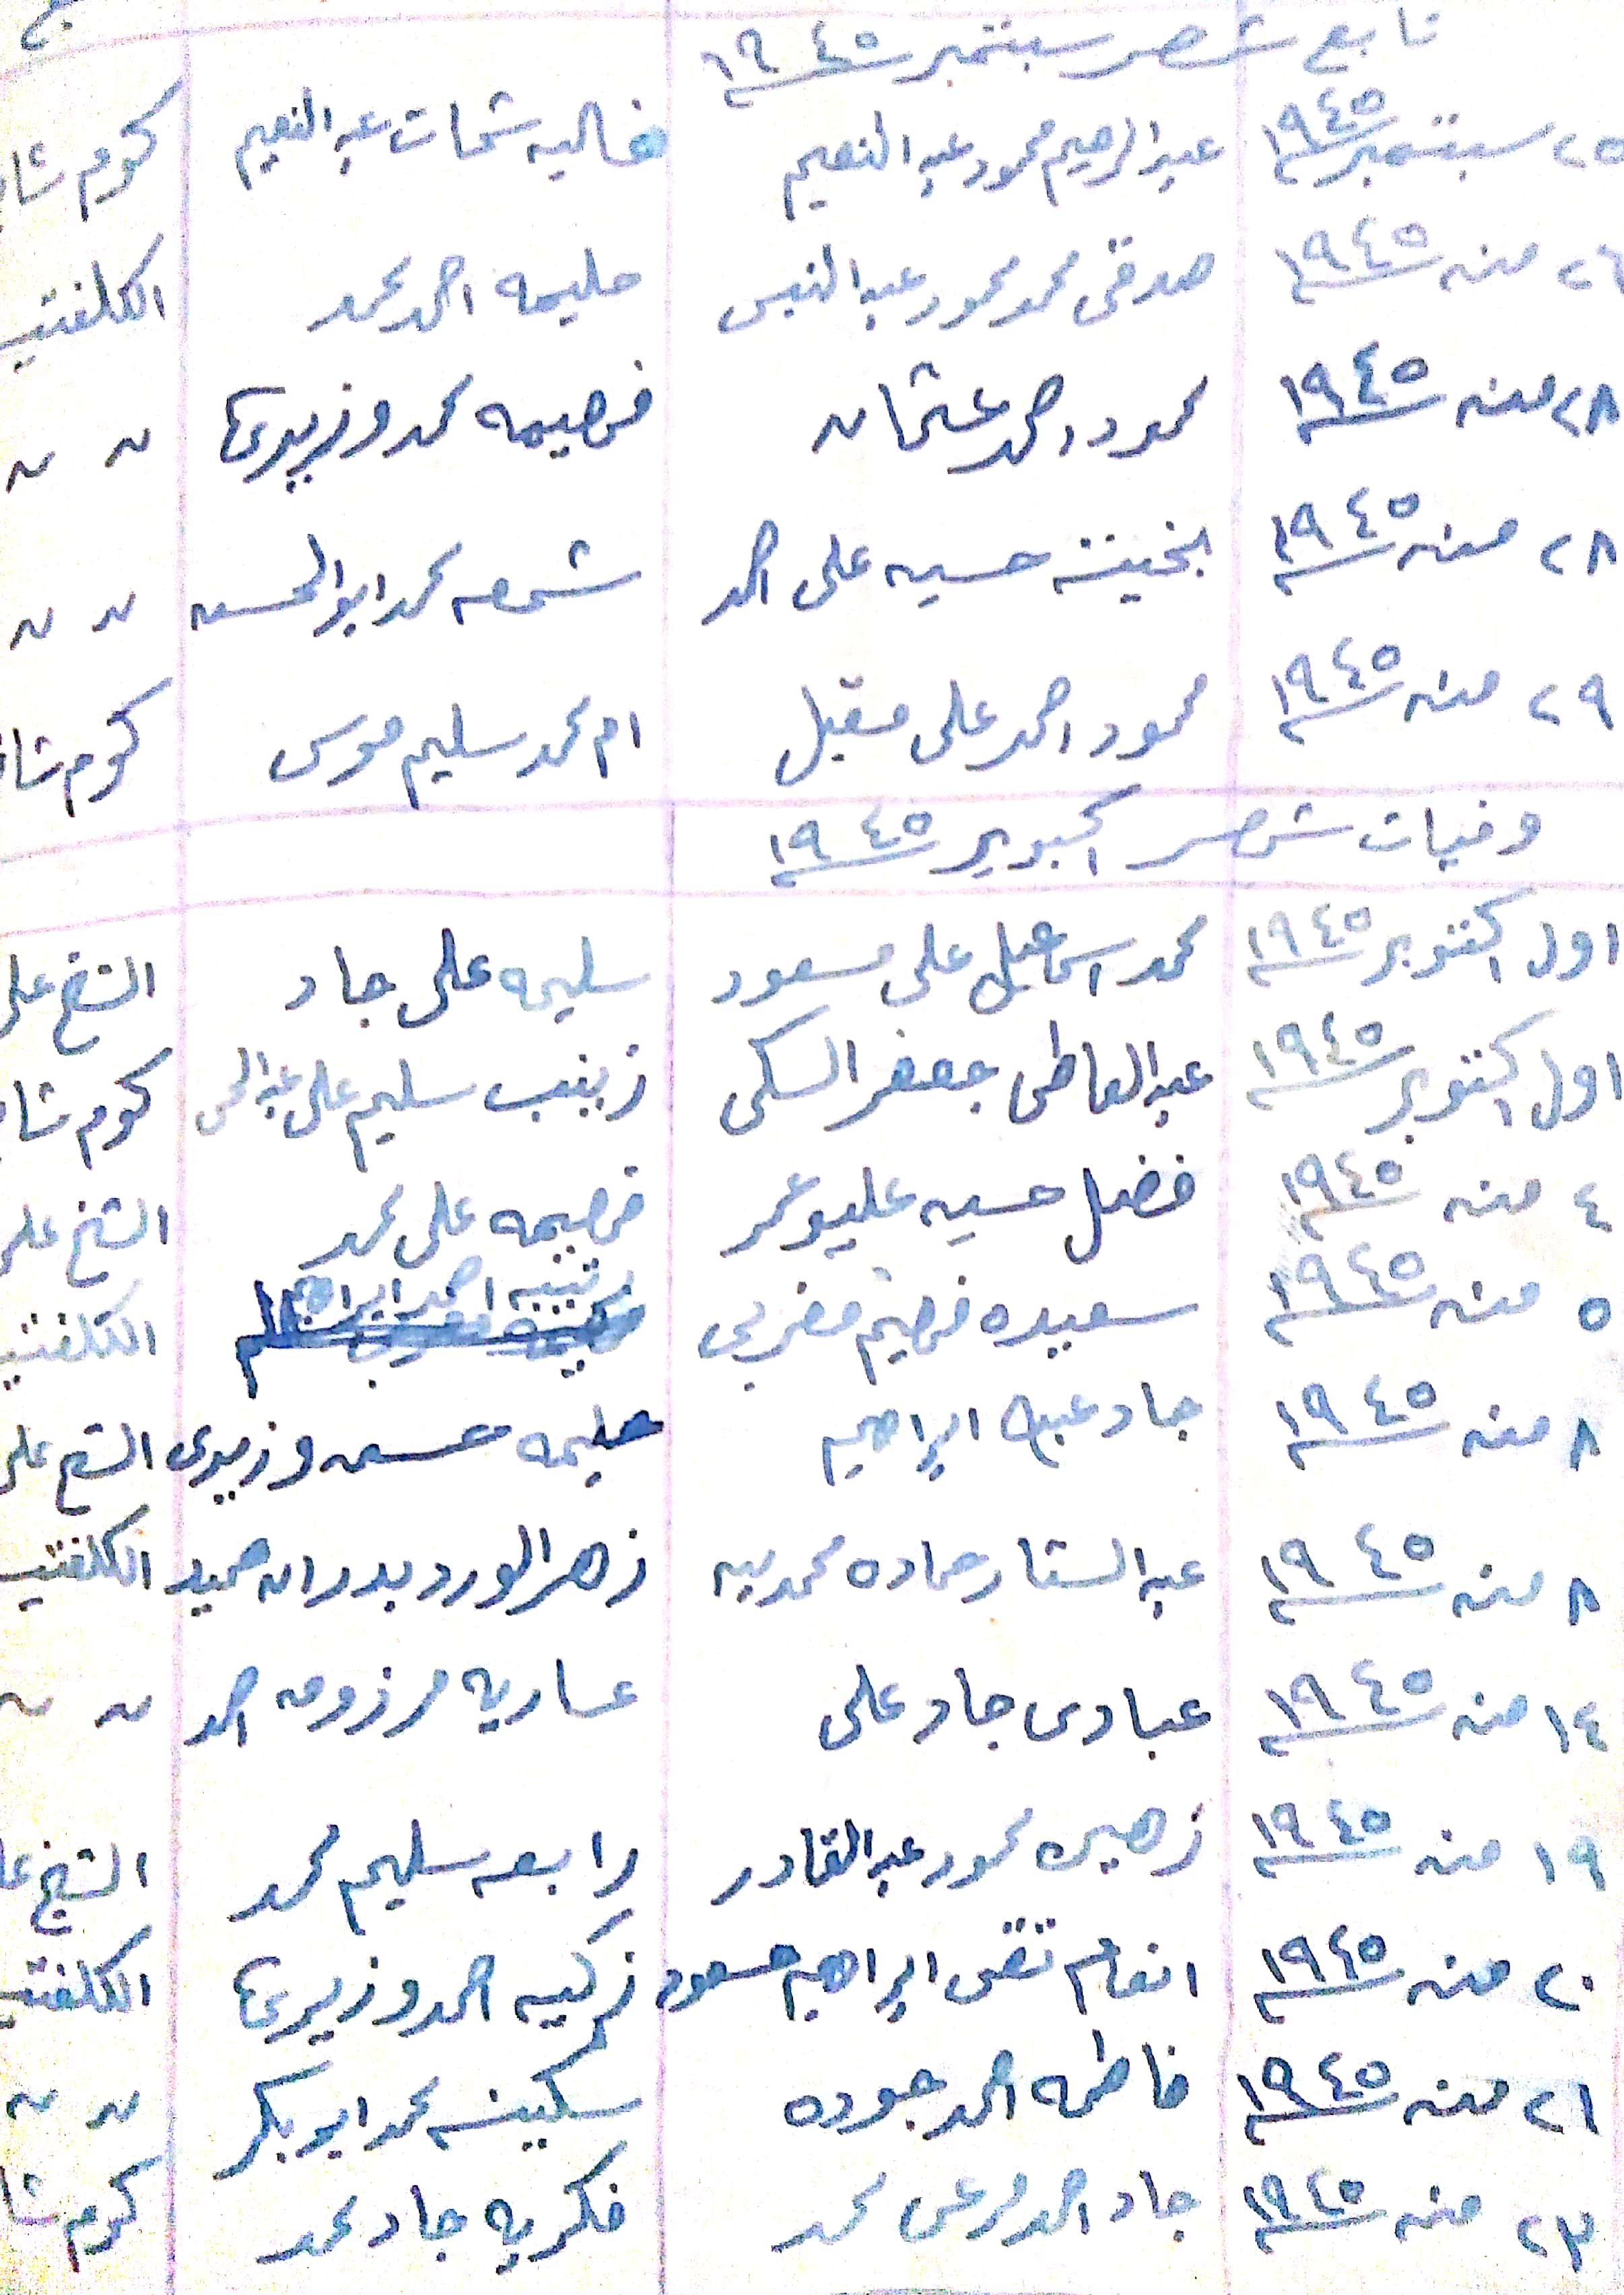 تابع شهر سبتمبر ١٩٤٥
٢٥ سبتمبر ١٩٤٥ عبد الرحيم محمود عبد النعيم غاليه شحات عبد النعيم كوم
٢٦ منه ١٩٤٥ صدقى محمد محمود عبد النبى حليمه احمد محمد الكلفتيه
٢٨ منه ١٩٤٥ محمود احمد عثمان فهيمه محمد وزيرى " "
٢٨ منه ١٩٤٥ بخيته حسين على احمد شمعه محمد ابو الحسن " "
٢٩ منه ١٩٤٥ محمود احمد على مقبل ام محمد سليم موسى كوم
وفيات شهر اكتوبر ١٩٤٥
اول اكتوبر ١٩٤٥ محمد اسماعيل على مسعود سليمه على جاد الشيخ على
اول اكتوبر ١٩٤٥ عبد العاطى جعفر السكى زينب سليم على كوم
٤ منه ١٩٤٥ فضل حسين عليو عمر فهيمه على محمد الشيخ على
٥ منه ١٩٤٥ سعيده فهيم مغربى احمد ابراهيم الكلفتيه
٨ منه ١٩٤٥ جاد عبد ابراهيم حليمه حسن وزيرى الشيخ على
٨ منه ١٩٤٥ عبد الستار حماده محمدين زهر الورد بدران حميد الكلفتيه
١٤ منه ١٩٤٥ عبادى جاد على عساريه مرزوق احمد " "
١٩ منه ١٩٤٥ زهيره محمود عبد القادر رابعه سليم محمد الشيخ
٢٠ منه ١٩٤٥ انعام تقى ابراهيم مسعود زكيه احمد وزيرى الكلفتيه
٢١ منه ١٩٤٥ فاطمه احمد جوده سكينه محمد ابو بكر " "
٢٣ منه ١٩٤٥ جاد احمد مرعى محمد فكريه جاد محمد كوم